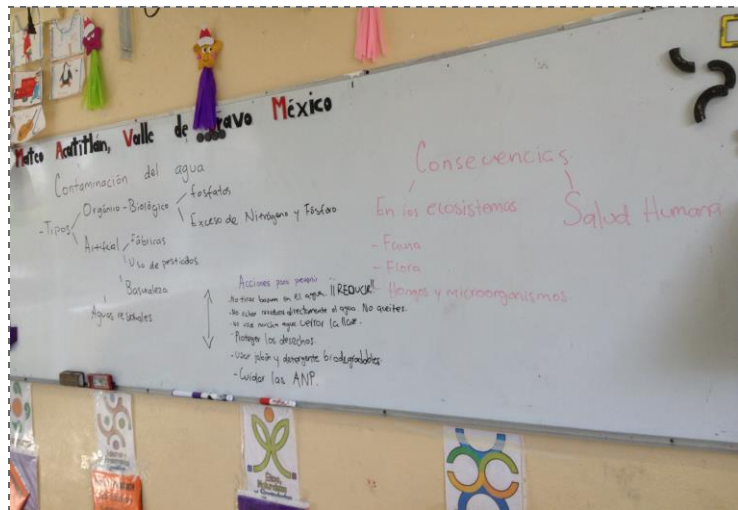 Mateo Acatitlán, Valle de Bravo México
Contaminación del agua
- Tipos
Orgánico - Biológico
fosfatos
Exceso de Nitrógeno y Fósforo
Artifical
Fábricas
Uso de pesticidas
Basuraleza
Aguas residuales
Acciones para prevenir
- No tirar basura en el agua. ¡¡REDUCIR!!
- No echar residuos directamente al agua. No aceites.
- No usar mucha agua cerrar la llave.
- Proteger los desechos.
- Usar jabón y detergente biodegradables.
- Cuidar las ANP.
Consecuencias
En los ecosistemas
- Fauna
- Flora
- Hongos y microorganismos.
Salud Humana